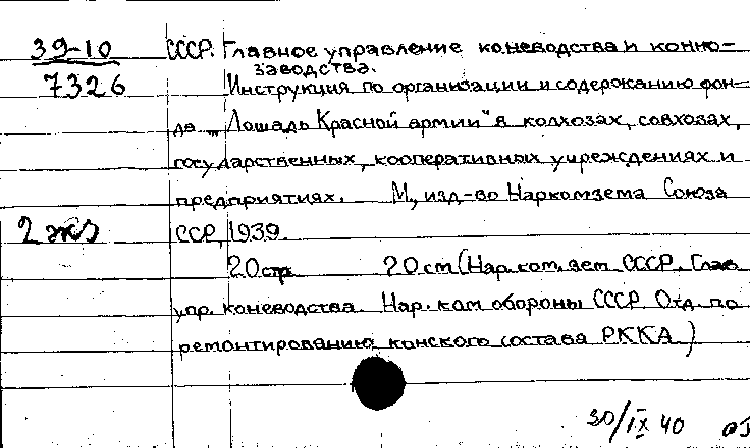 39-10 СССР. Главное управление коневодства и конно-
заводства.
7326 Инструкция по организации и содержанию фон-
да „Лошадь Красной армии" в колхозах, совхозах,
государственных, кооперативных учреждениях и
предприятиях. М., изд-во Наркомзема Союза
2 экз ССР, 1939.
20 стр. 20 см (Нар. ком. зем. СССР. Глав.
упр. коневодства. Нар. ком обороны СССР. Отд. по
ремонтированию конского состава РККА)
30/IX 40